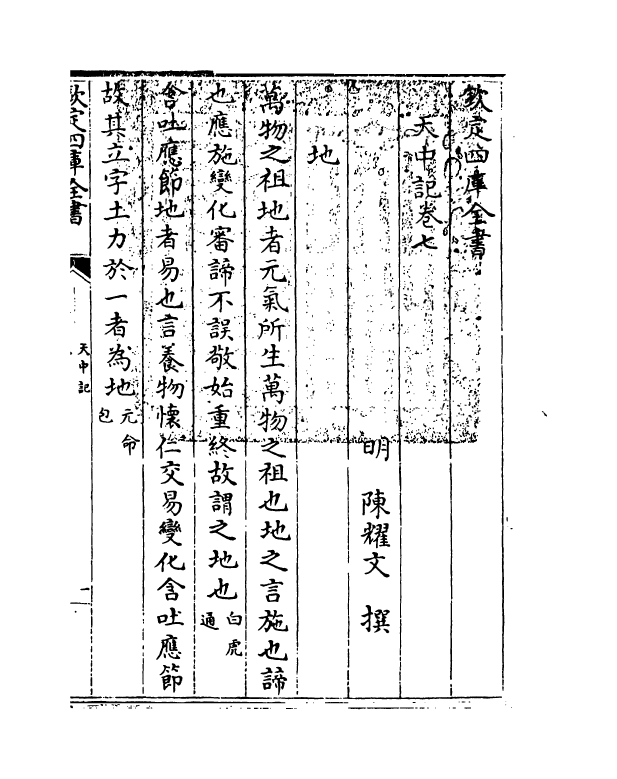 欽定四庫全書
天中記卷七
明 陳耀文 撰
地
萬物之祖地者元氣所生萬物之祖也地之言施也諦
也應施變化審諦不誤敬始重終故謂之地也白虎通
含吐應節地者易也言養物懷仁交易變化含吐應節
故其立字土力於一者為地元命包
欽定四庫全書
天中記
一